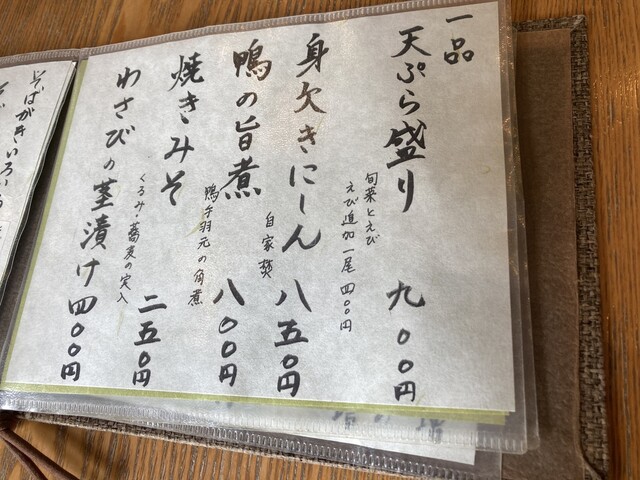 一品
天ぷら盛り 九〇〇円
旬菜とえび
えび追加一尾 四〇〇円
身欠きにしん 八五〇円
自家製
鴨の旨煮 八〇〇円
鴨手羽元の角煮
焼きみそ 二五〇円
くるみ・蕎麦の実入
わさびの茎漬け 四〇〇円
そばがきいろいろ